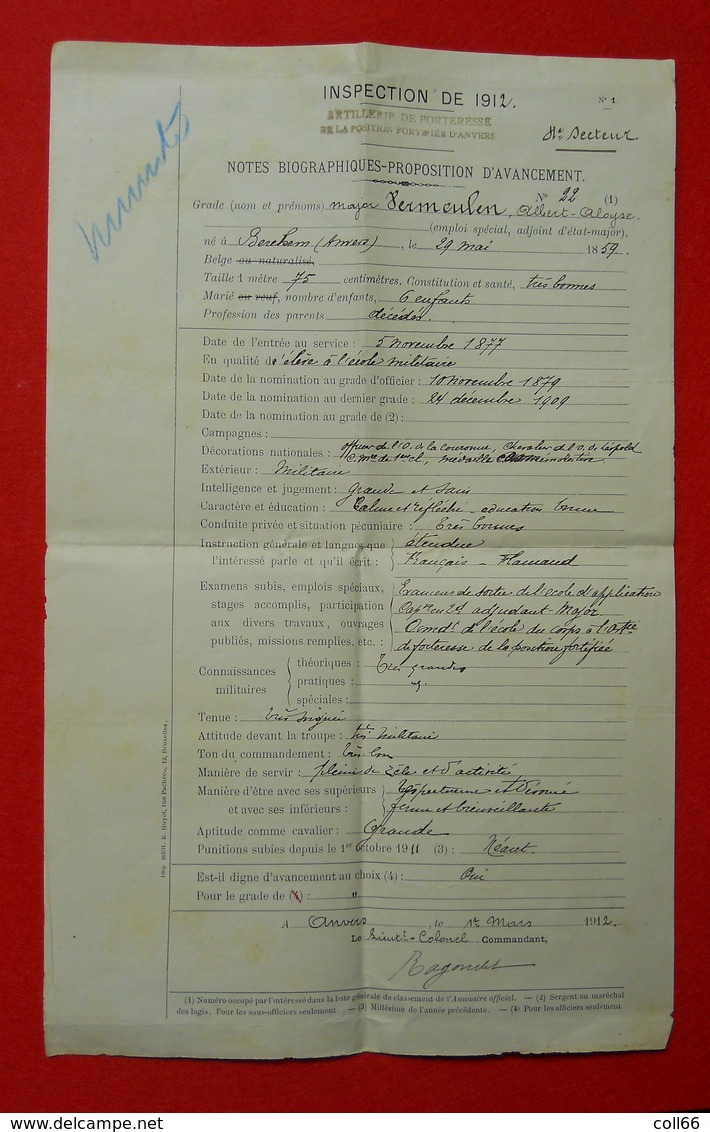 INSPECTION DE 1912.
N° 1
ARTILLERIE DE FORTERESSE
DE LA POSITION FORTIFIÉE D'ANVERS
Secteur
NOTES BIOGRAPHIQUES-PROPOSITION D'AVANCEMENT.
N° 22 (1)
Grade (nom et prénoms) major Vermeulen, Albert-Aloyse.
(emploi spécial, adjoint d'état-major).
né à Berchem (Anvers), le 29 mai 1859.
Belge ou naturalisé,
Taille 1 mètre 75 centimètres. Constitution et santé, très bonnes
Marié ou veuf, nombre d'enfants, 6 enfants
Profession des parents décédés.
Date de l'entrée au service : 5 novembre 1877
En qualité d'élève à l'école militaire
Date de la nomination au grade d'officier : 10 novembre 1879
Date de la nomination au dernier grade : 24 décembre 1909
Date de la nomination au grade de (2) :
Campagnes :
Décorations nationales : officier de l'O. de la couronne, Chevalier de l'O. de Léopold
C. mre de 1ere cl, médaille commémorative
Extérieur : Militaire
Intelligence et jugement : grande et sain
Caractère et éducation : Calme et réfléchi - éducation bonne
Conduite privée et situation pécuniaire : très bonnes
Instruction générale et langues que étendue
l'intéressé parle et qu'il écrit : Français - Flamand
Examens subis, emplois spéciaux, Examens de sortie de l'école d'application
stages accomplis, participation Capne en 2d adjudant-major
aux divers travaux, ouvrages Comdt de l'école du corps à l'Artie
publiés, missions remplies, etc. : de forteresse de la position fortifiée
Connaissances militaires
théoriques : Très grandes
pratiques :
spéciales :
Tenue : très soignée
Attitude devant la troupe : très militaire
Ton du commandement : très bon
Manière de servir : pleine de zèle et d'activité
Manière d'être avec ses supérieurs Respectueuse et dévouée
et avec ses inférieurs : ferme et bienveillante
Aptitude comme cavalier : Grande
Punitions subies depuis le 1er octobre 1911 (3) : Néant.
Est-il digne d'avancement au choix (4) : Oui
Pour le grade de (4) : "
A Anvers, le 1r Mars 1912.
Le Lieutt-Colonel Commandant,
(1) Numéro occupé par l'intéressé dans la liste générale de classement de l'Annuaire officiel. — (2) Sergent ou maréchal
des logis. Pour les sous-officiers seulement. — (3) Millésime de l'année précédente. — (4) Pour les officiers seulement.
Imp. milit. E. Guyot, rue Pachéco, 12, Bruxelles.
delcampe.net
coll66